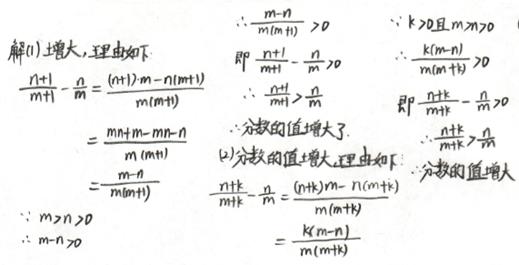 解(1)增大,理由如下
(n+1)/(m+1) - n/m = ((n+1)·m-n(m+1))/(m(m+1))
= (mn+m-mn-n)/(m(m+1))
= (m-n)/(m(m+1))
∵ m>n>0
∴ m-n>0
∴ (m-n)/(m(m+1)) >0
即 (n+1)/(m+1) - n/m >0
∴ (n+1)/(m+1) > n/m
∴分数的值增大了.
(2)分数的值增大,理由如下:
(n+k)/(m+k) - n/m = ((n+k)m-n(m+k))/(m(m+k))
= k(m-n)/(m(m+k))
∵ k>0且m>n>0
∴ k(m-n)/(m(m+k)) >0
即 (n+k)/(m+k) - n/m >0
∴ (n+k)/(m+k) > n/m
∴分数的值增大